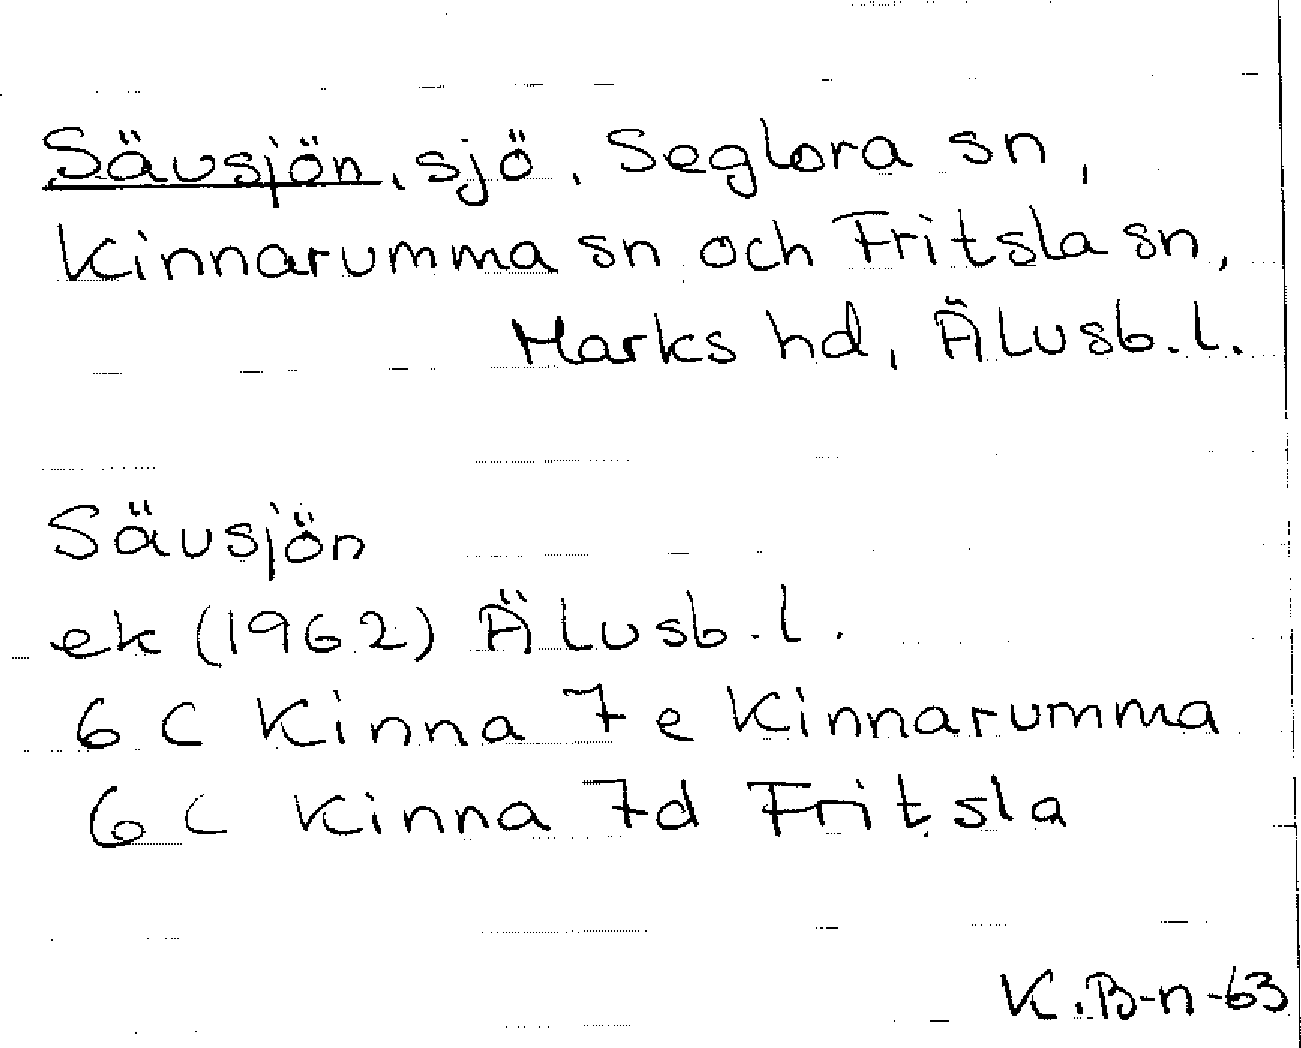 Sävsjön, sjö, Seglora sn,
Kinnarumma sn och Fritsla sn,
Marks hd, Älvsb. l.
Sävsjön
ek (1962) Älvsb. l.
6 C Kinna 7 e Kinnarumma
6 C Kinna 7d Fritsla
K.B-n-63